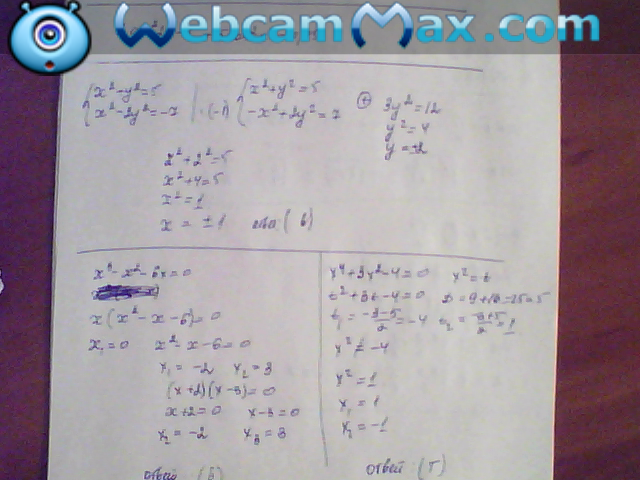 WebcamMax.com
{x²-y²=5
x²-2y²=-7 | ·(-1) {x²+y²=5
-x²+2y²=7 ⊕ 3y²=12
y²=4
y=±2
2²+2²=5
x²+4=5
x²=1
x = ±1
x³-x²-6x=0
x(x²-x-6)=0
x₁=0 x²-x-6=0
x₁=-2 x₂=3
(x+2)(x-3)=0
x+2=0 x-3=0
x₂=-2 x₃=3
ответ (Б)
x⁴+3x²-4=0 x²=t
t²+3t-4=0 D=9+16=25=5
t₁=(-3-5)/2=-4 t₂=(-3+5)/2=1
x²≠-4
x²=1
x₁=1
x₂=-1
ответ (Г)